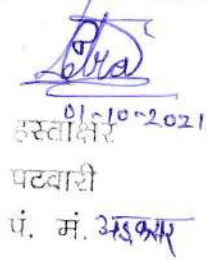 01-10-2021
हस्ताक्षर
पटवारी
पं. मं.